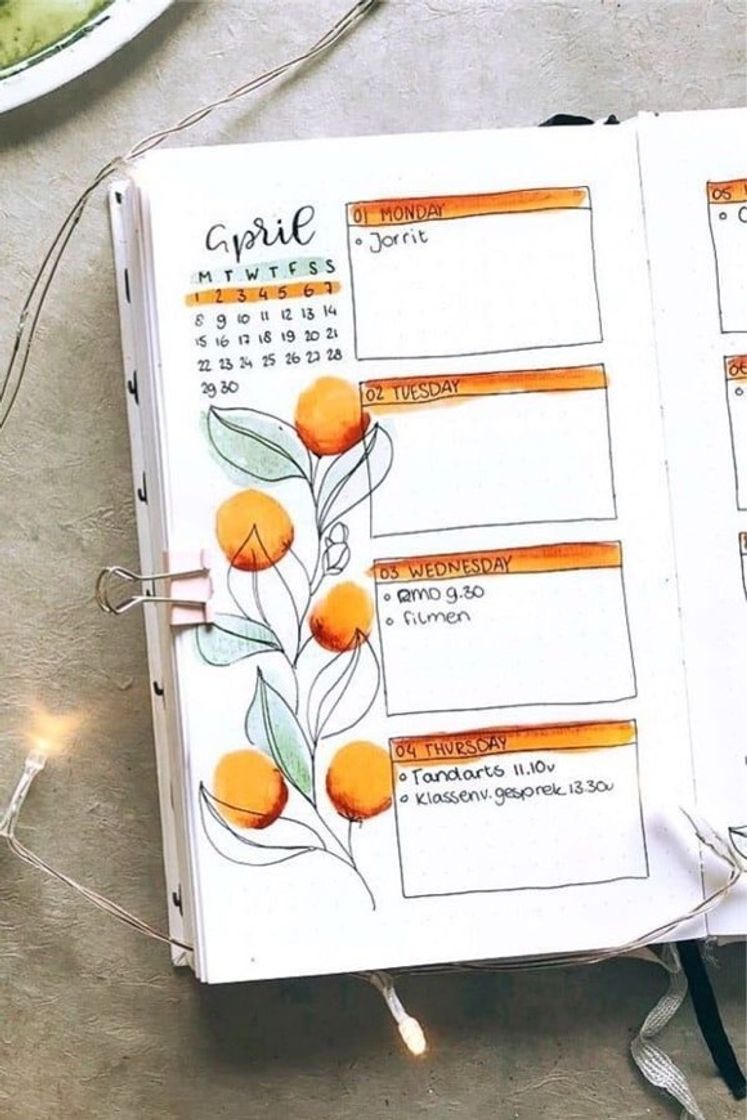 April
M T W T F S S
1 2 3 4 5 6 7
8 9 10 11 12 13 14
15 16 17 18 19 20 21
22 23 24 25 26 27 28
29 30
01 MONDAY
• Jorrit
02 TUESDAY
03 WEDNESDAY
• RMO 9.30
• filmen
04 THURSDAY
• Tandarts 11.10u
• Klassenv. gesprek 13.30u
05